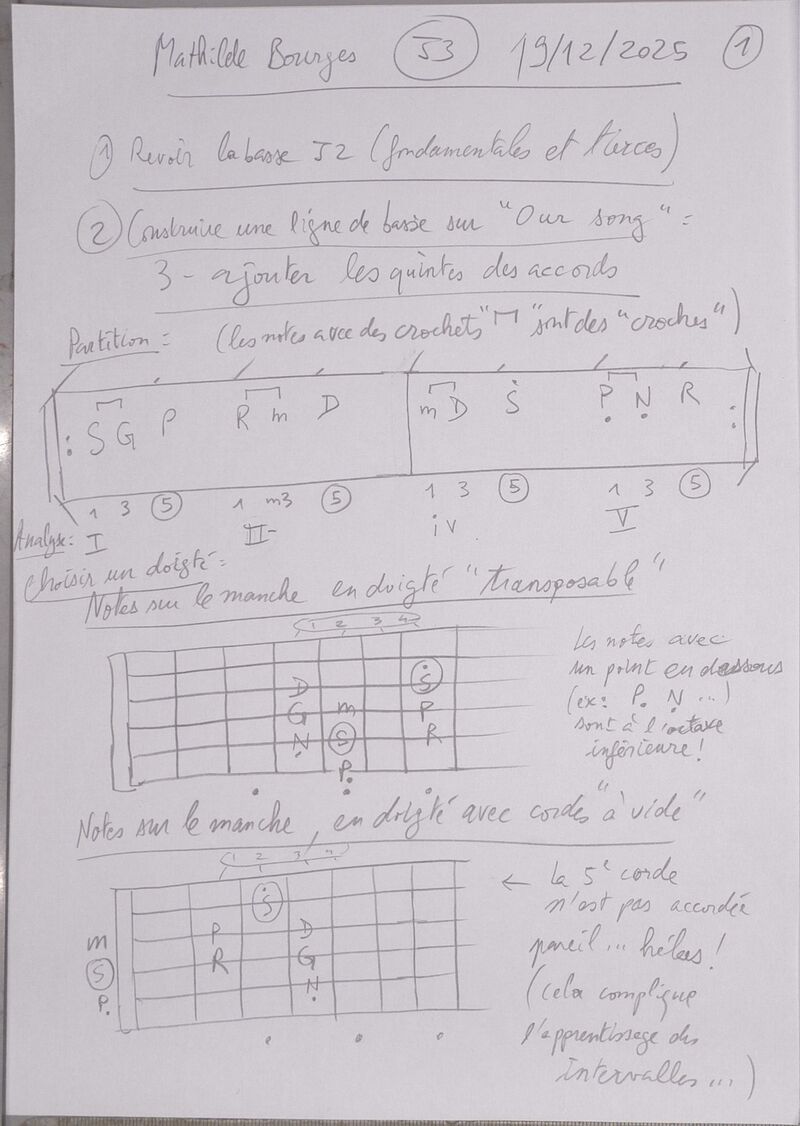 Mathilde Bourges J3 19/12/2025 1
1 Revoir la basse J2 (fondamentales et tierces)
2 Construire une ligne de basse sur "Our song" =
3 - ajouter les quintes des accords
Partition = (les notes avec des crochets "⊓" sont des "croches")
: S G P R m D m D Ṡ P̣ Ṇ R :
1 3 5 1 m3 5 1 3 5 1 3 5
Analyse : I II- iv V
Choisir un doigté =
Notes sur le manche en doigté "transposable"
1 2 3 4
Ṡ
D
G m P
Ṇ S R
P̣
Les notes avec
un point en dessous
(ex : P̣ Ṇ ...)
sont à l'octave
inférieure !
Notes sur le manche, en doigté avec cordes "à vide"
1 2 3 4
Ṡ
P D
m R G
S Ṇ
P̣
← la 5e corde
n'est pas accordée
pareil ... hélas !
(cela complique
l'apprentissage des
intervalles ...)